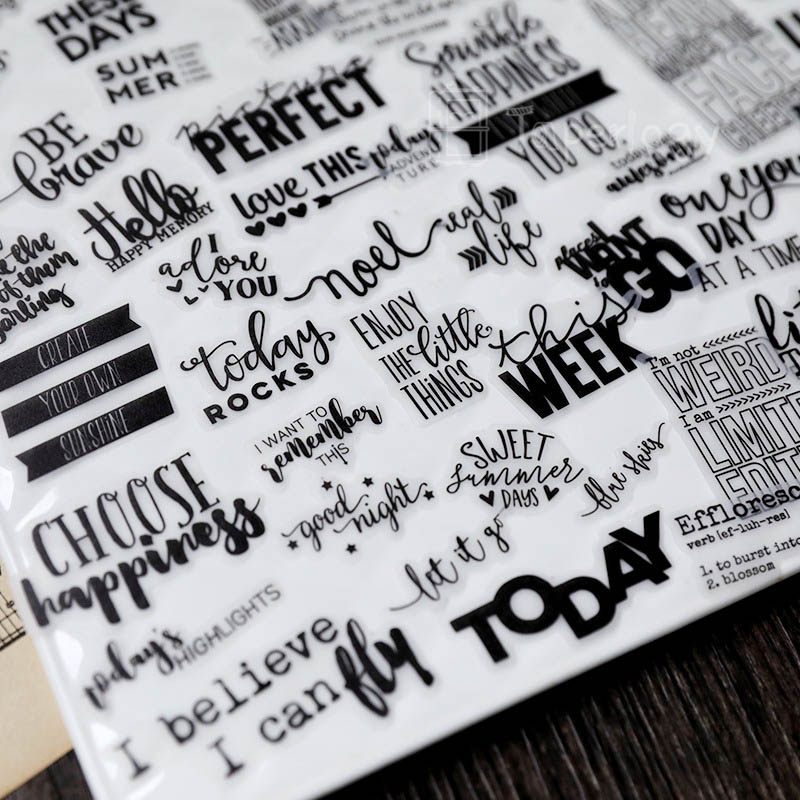 THESE
DAYS
SUM
MER
BE
brave
picture
PERFECT
Sprinkle
HAPPINESS
YOU GO
HEART
FACE
Hello
HAPPY MEMORY
love THIS
today's
ADVEN
TURE
awesome
the
of them
darling
I
adore
YOU
noel
real
life
places I
WANT
to
GO
one
DAY
AT A TIME
CREATE
YOUR OWN
SUNSHINE
today
ROCKS
ENJOY
THE little
THINGS
this
WEEK
I'm not
WEIRD
I am
LIMITED
I WANT TO
remember
THIS
SWEET
summer
DAYS
blue skies
CHOOSE
happiness
good
night
let it go
TODAY
verb [ef-luh-res]
1. to burst into
2. blossom
today's
HIGHLIGHTS
I believe
I can fly